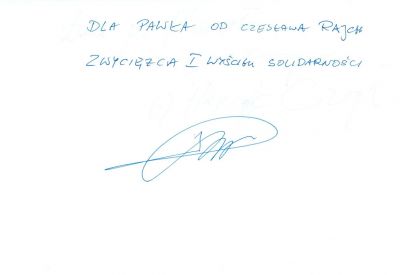 DLA PAWŁA OD CZESŁAWA RAJCH
ZWYCIĘZCA I WYŚCIGU SOLIDARNOŚCI